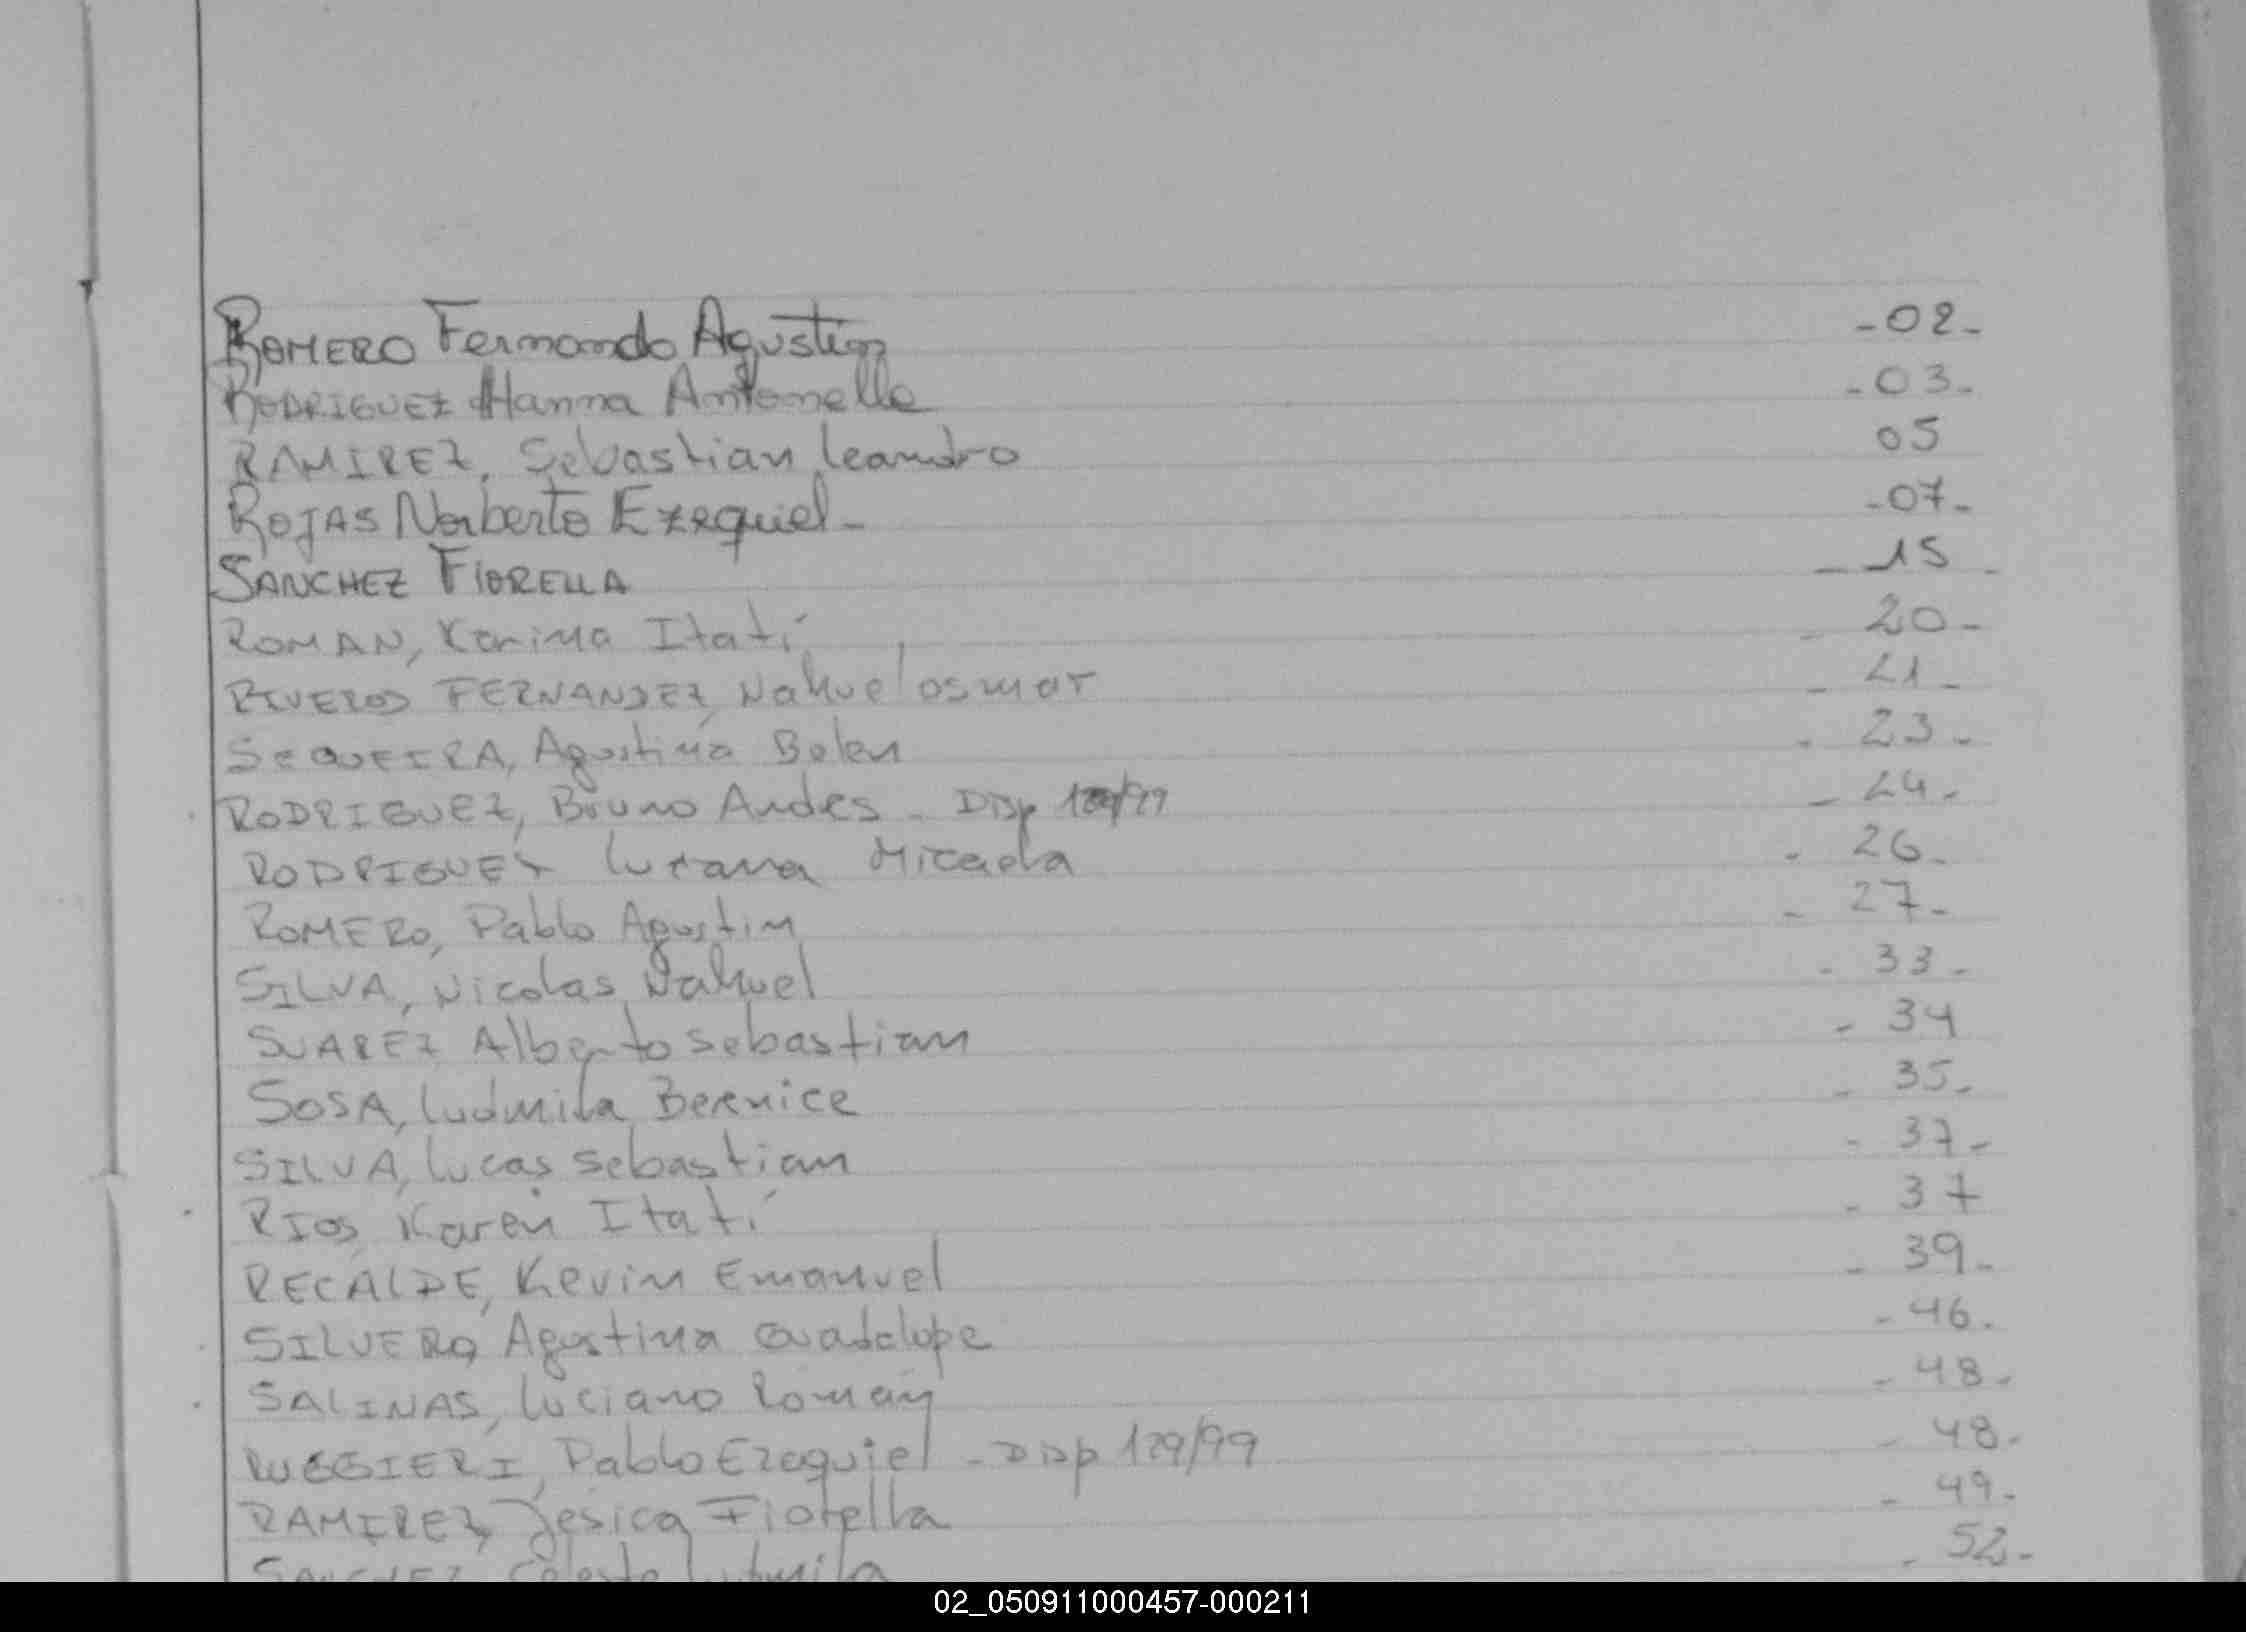 ROMERO Fernando Agustin -02-
RODRIGUEZ Hanna Antonella -03-
RAMIREZ, Sebastian Leandro 05
ROJAS Norberto Ezequiel- -07-
SANCHEZ FIORELLA - 15 -
ROMAN, Karina Itatí - 20-
RIVEROS FERNANDEZ, Nahuel osmar - 21 -
SEQUEIRA, Agustina Belen - 23 -
RODRIGUEZ, Bruno Andes - Disp 129/99 - 24 -
RODRIGUEZ Luciana Micaela - 26 -
ROMERO, Pablo Agustin - 27-
SILVA, Nicolas Nahuel - 33 -
SUAREZ Alberto Sebastian - 34
SOSA, Ludmila Bernice - 35-
SILVA, Lucas Sebastian - 37-
RIOS, Karen Itatí - 37
RECALDE, Kevin Emanuel - 39-
SILVERO, Agustina Guadalupe - 46.
SALINAS, Luciano Román - 48-
RUGGIERI, Pablo Ezequiel - Disp 129/99 - 48-
RAMIREZ, Jesica Fiorella - 49-
SANCHEZ, Celeste Ludmila - 52-
02_050911000457-000211